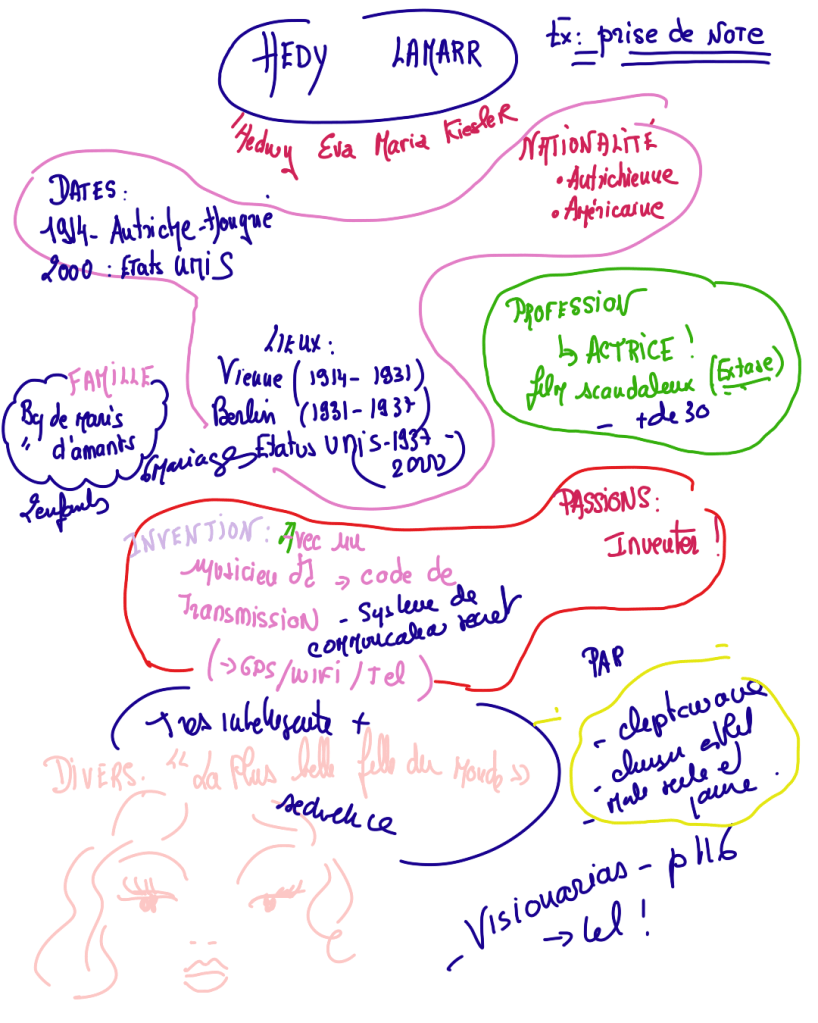 HEDY LAMARR
Ex: prise de NOTE
"Hedwy Eva Maria Kiesler
NATIONALITÉ
• Autrichienne
• Américaine
DATES:
1914 - Autriche-Hongrie
2000 : Etats UNIS
PROFESSION
↳ ACTRICE !
film scandaleux (Extase)
- + de 30
LIEUX :
Vienne (1914 - 1931)
Berlin (1931 - 1937)
Etatus UNIS - 1937 -
2000)
FAMILLE
Bq de Maris
" d'amants
6 Mariages
2 enfants
PASSIONS:
Inventer !
INVENTION: Avec un
Musicien → code de
Transmission - Système de
communication secret
(→ GPS/WIFI/Tel)
Très intelligente +
DIVERS. "La Plus belle fille du Monde"
séductrice
PAR
- cleptomane
-
- seule et
.
- Visionarias - p 116
→ !